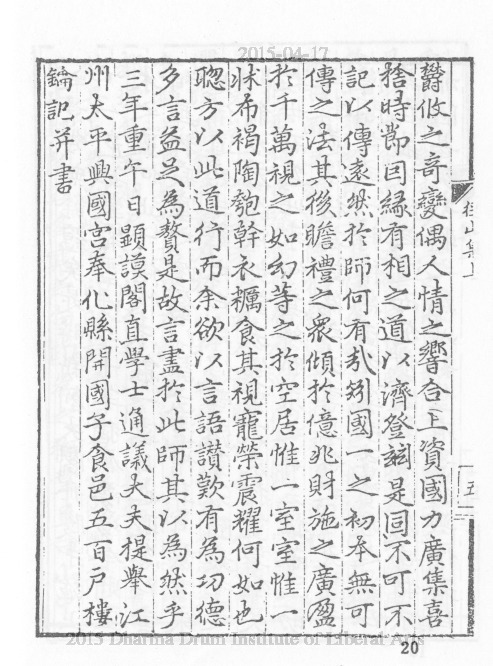 2015-04-17
欝攸之奇變偶人情之響合上資國力廣集喜
捨時節因緣有相之道以濟登茲是同不可不
記以傳遠然於師何有㢤矧國一之初本無可
傳之法其後瞻禮之衆傾於億兆財施之廣盈
於千萬視之如幻等之於空居惟一室室惟一
牀布褐陶匏幹衣糲食其視寵榮震耀何如也
聦方以此道行而余欲以言語讃歎有為功德
多言益足為贅是故言盡於此師其以為然乎
三年重午日顕謨閣直學士通議大夫提舉江
州太平興國宮奉化縣開國子食邑五百戶樓
鑰記并書
徑山集上
五
2015 Dharma Drum Institute of Liberal Arts
20